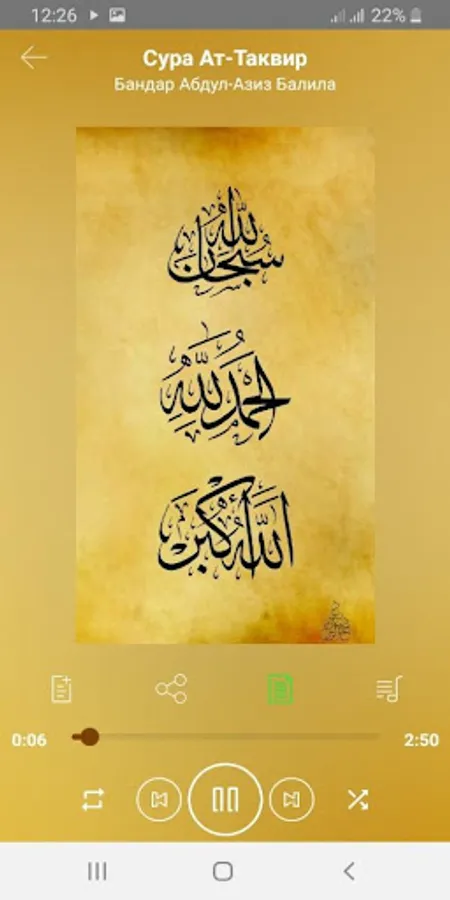 12:26
22%
Сура Ат-Таквир
Бандар Абдул-Азиз Балила
سُبْحَانَ اللّٰه
الْحَمْدُ لِلّٰهِ
اللّٰهُ أَكْبَرُ
0:06
2:50